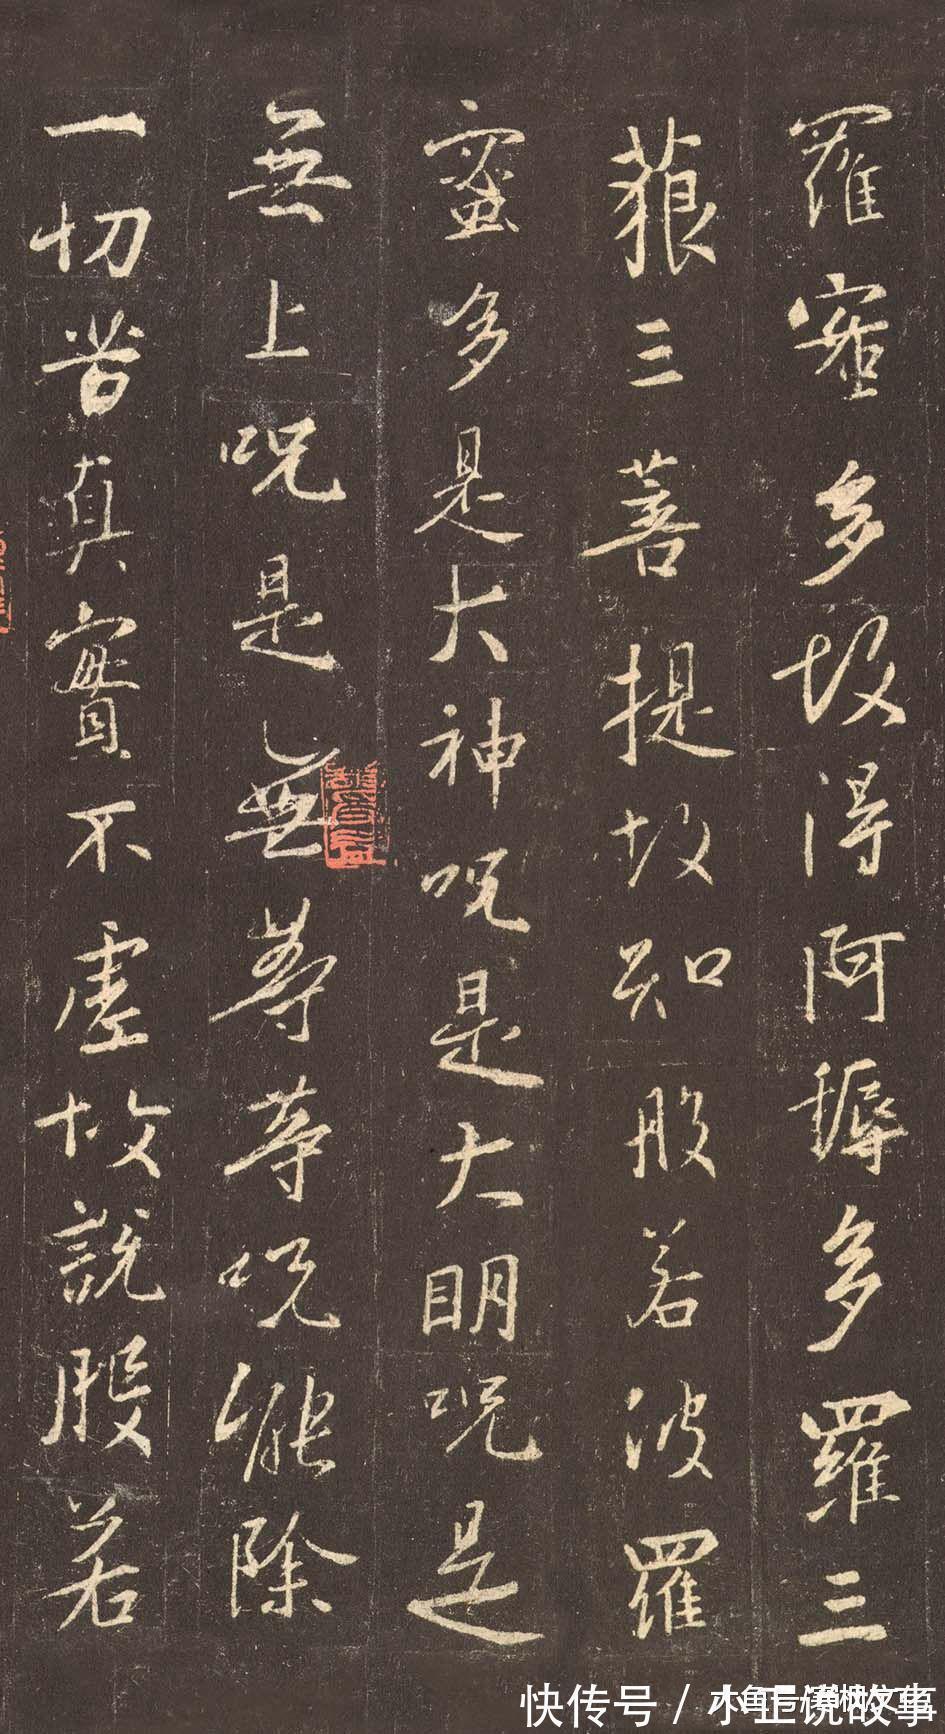 羅蜜多故得阿耨多羅三
藐三菩提故知般若波羅
蜜多是大神咒是大明咒是
無上咒是無等等咒能除
一切苦真實不虛故說般若
快传号 / 小正说故事